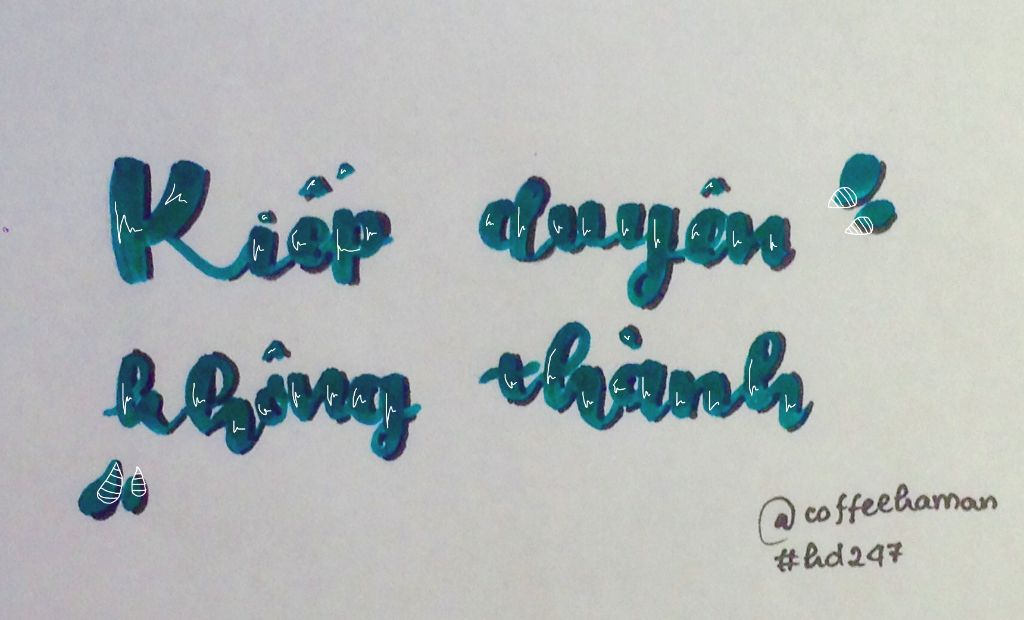 Kiếp duyên
không thành
@coffeehaman
#hd247